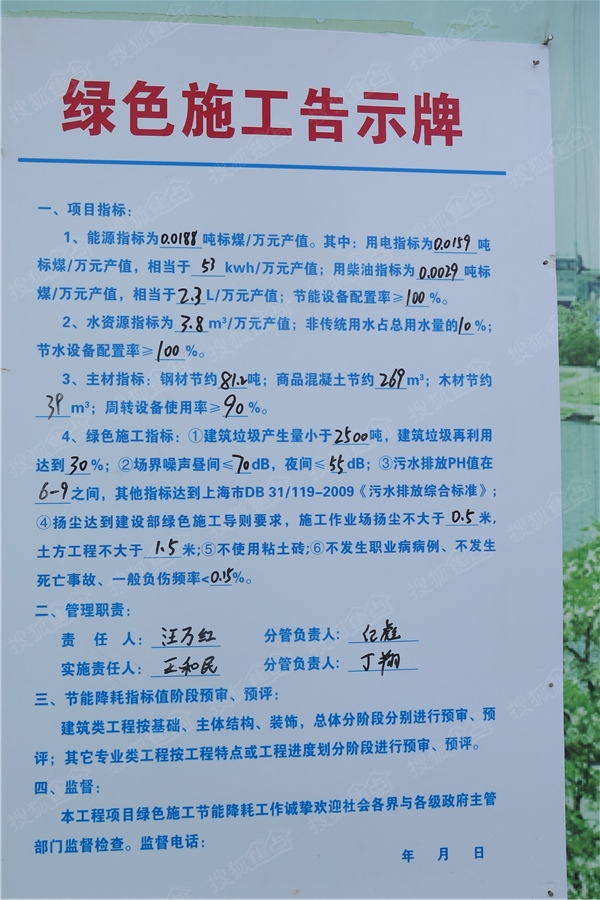 绿色施工告示牌
一、项目指标：
1、能源指标为0.0188吨标煤/万元产值。其中：用电指标为0.0159吨
标煤/万元产值，相当于 53 kwh/万元产值；用柴油指标为0.0029吨标
煤/万元产值，相当于2.3L/万元产值；节能设备配置率≥100%。
2、水资源指标为 3.8 m³/万元产值；非传统用水占总用水量的10%；
节水设备配置率≥100%。
3、主材指标：钢材节约81.2吨；商品混凝土节约 269 m³；木材节约
39 m³；周转设备使用率≥90%。
4、绿色施工指标：①建筑垃圾产生量小于2500吨，建筑垃圾再利用
达到30%；②场界噪声昼间≤70dB，夜间≤55dB；③污水排放PH值在
6-9之间，其他指标达到上海市DB 31/119-2009《污水排放综合标准》；
④扬尘达到建设部绿色施工导则要求，施工作业场扬尘不大于 0.5 米，
土方工程不大于 1.5 米；⑤不使用粘土砖；⑥不发生职业病病例、不发生
死亡事故、一般负伤频率<0.15%。
二、管理职责：
责 任 人：汪万红 分管负责人：
实施责任人：王和民 分管负责人：丁翔
三、节能降耗指标值阶段预审、预评：
建筑类工程按基础、主体结构、装饰，总体分阶段分别进行预审、预
评；其它专业类工程按工程特点或工程进度划分阶段进行预审、预评。
四、监督：
本工程项目绿色施工节能降耗工作诚挚欢迎社会各界与各级政府主管
部门监督检查。监督电话：
年 月 日